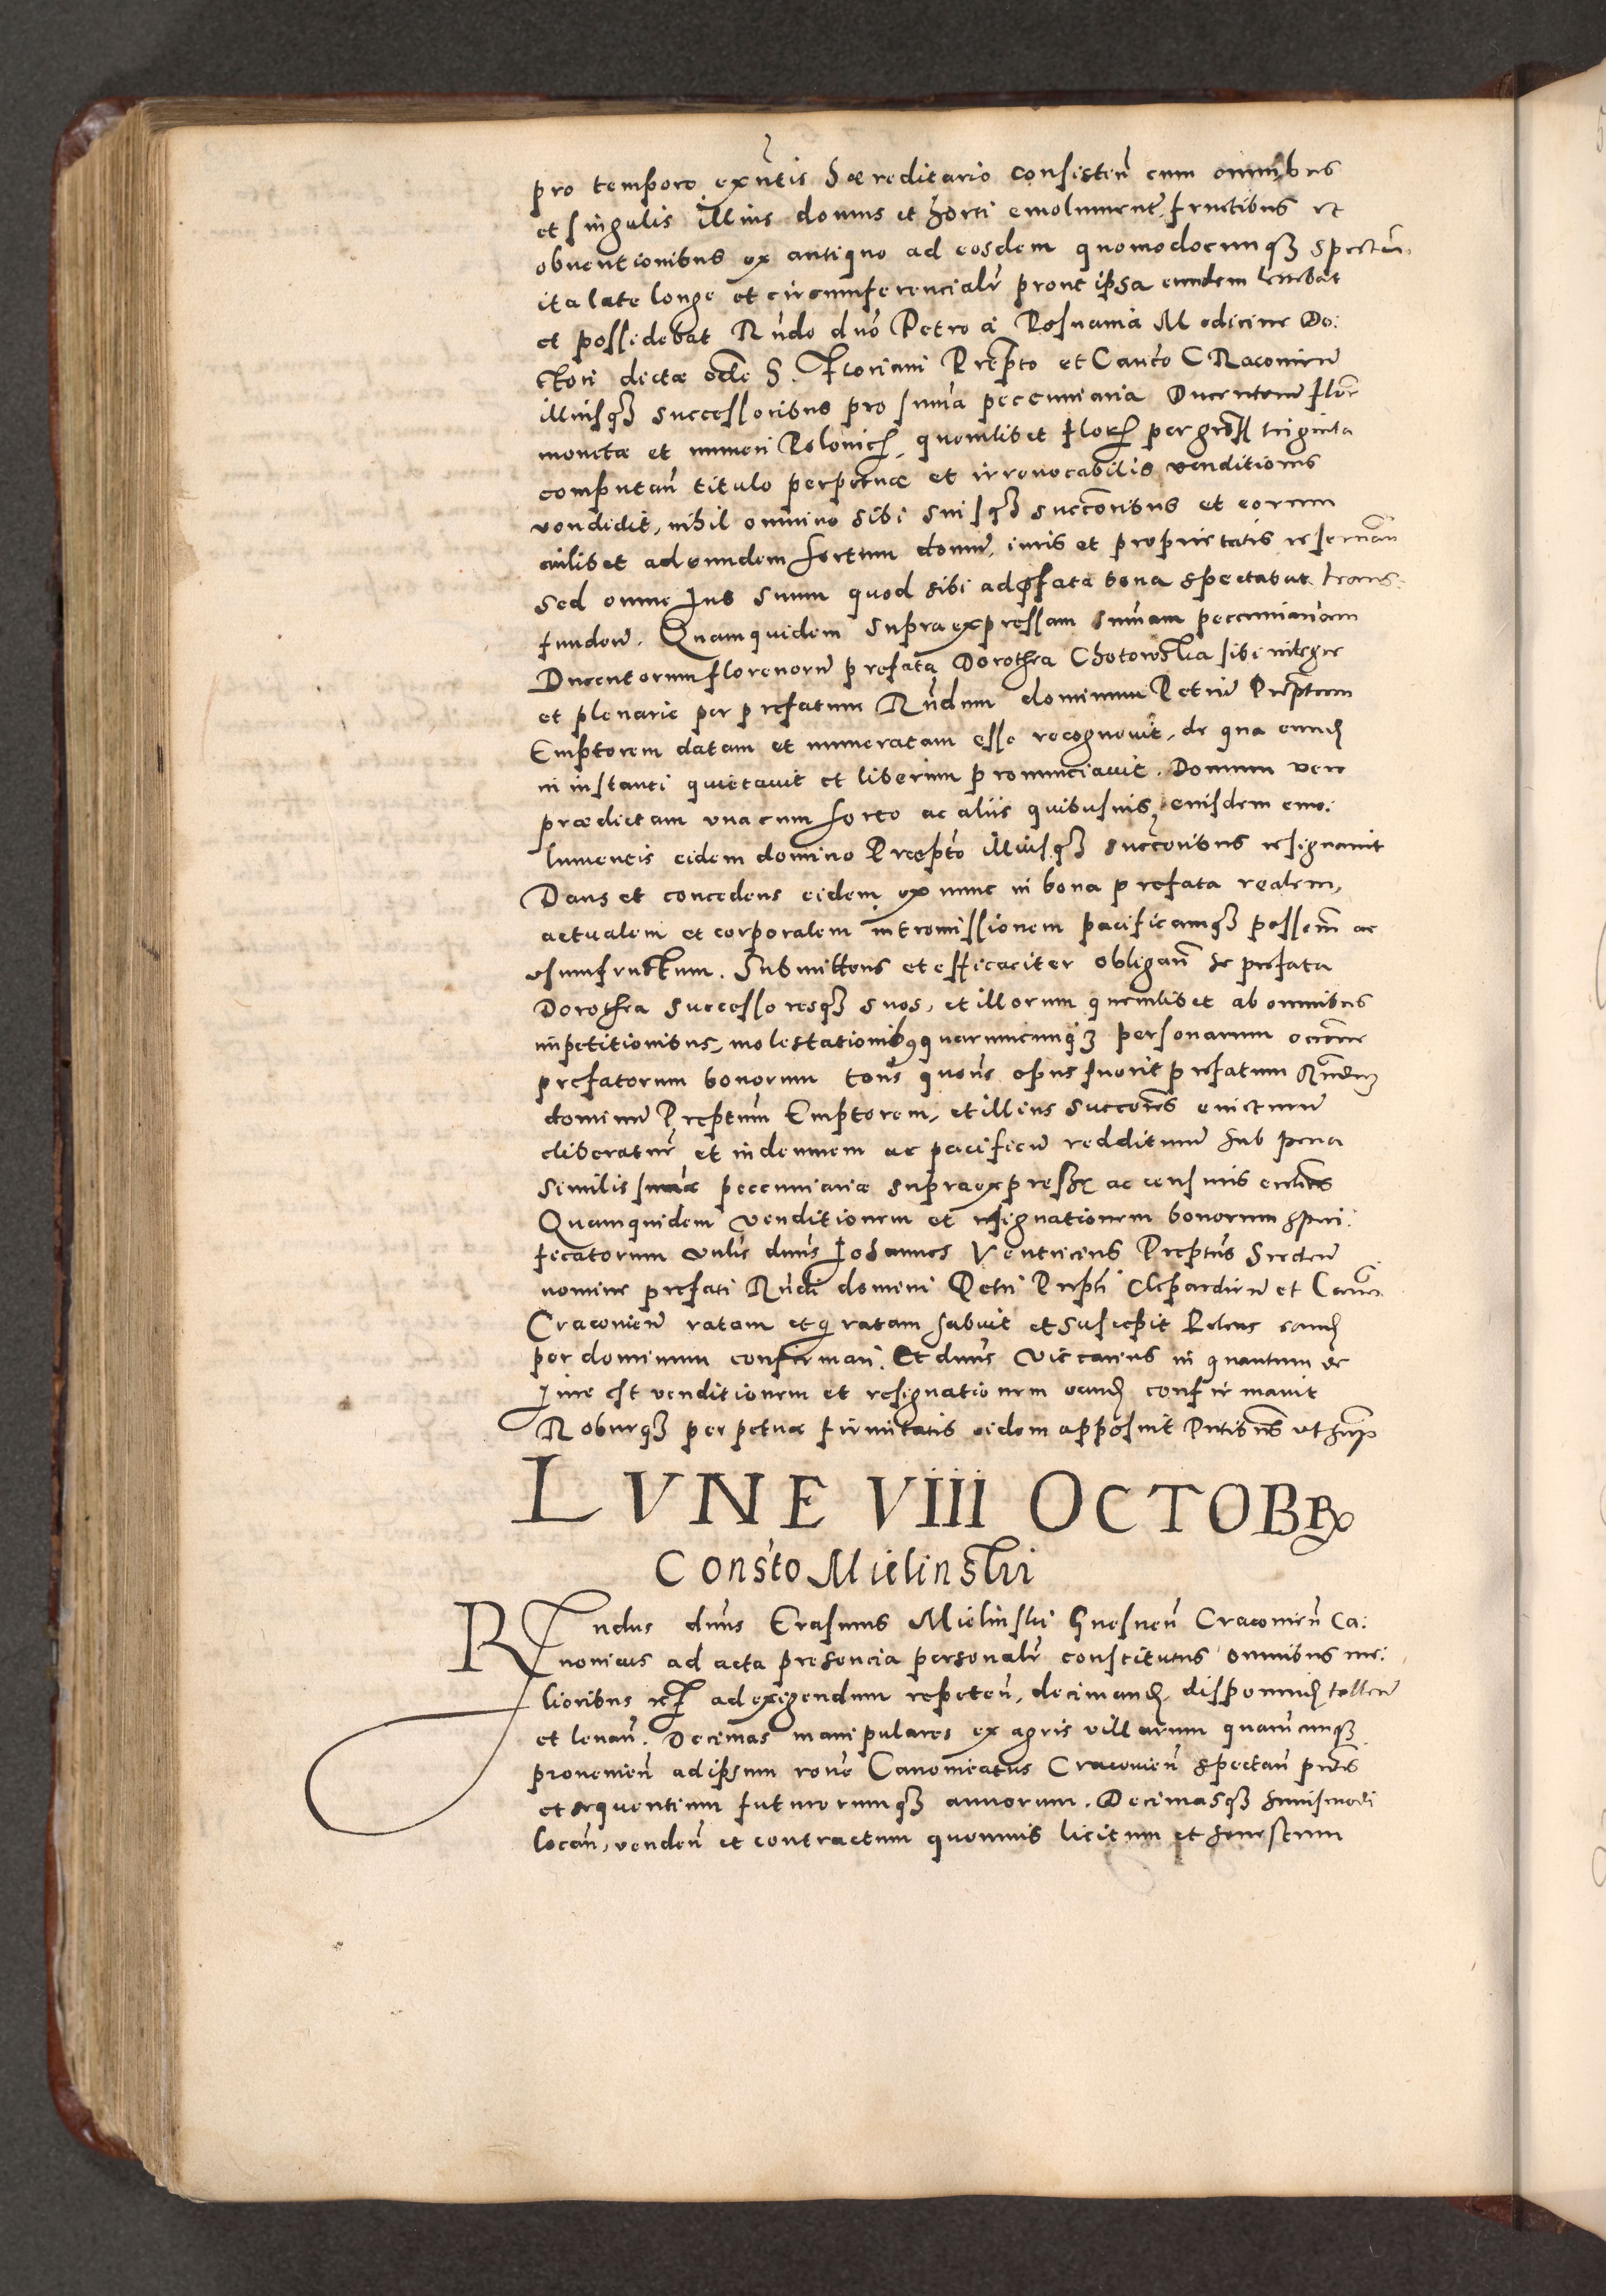 pro tempore exñtis hæreditario consisteñ cum omnibus
et singulis illius domus et horti emolument. fructibus et
obventionibus ex antiquo ad eosdem quomodocunqȝ spectañ.
ita late longe et circumferencialr̃ prout ipsa eundem tenebat
et possidebat Rñdo dño Petro à Posnania Medicine Do:
ctori dictæ ecclẽ S. Floriani Prepto et Canco CRacovieñ
illiusqȝ successoribus pro summa peccuniaria Ducentorũ flor̃
monetæ et numeri Polonicȝ, quemlibet flor. per gross. triginta
computañ titulo perpetuæ et irrevocabilis venditionis
vendidit, nihil omnino sibi suisqȝ succoribus et eorum
cuilibet ad eundem hortum domũ, iuris et proprietatis reservañ
Sed omne Jus suum quod sibi ad pfata bona spectabat trans:
fundeñ. Quamquidem supraexpressam sum̃am peccuniariam
Ducentorum florenorũ prefata Dorothea Chotowska sibi integre
et plenarie per prefatum Rñdum dominum Petrũ Preptum
Emptorem datam et numeratam esse recognovit, de qua eundȝ
in instanti quietavit et liberum pronunciavit. Domum vero
prædictam una cum horto ac aliis quibusvis eiusdem emo:
lumentis eidem domino Prepto illiusqȝ succoribus resignavit
Dans et concedens eidem ex nunc in bona prefata realem,
actualem et corporalem intromissionem pacificamqȝ possem̃ ac
usumfructum. Submittens et efficaciter obligañ se prefata
Dorothea successoresqȝ suos, et illorum quemlibet ab omnibus
impetitionibus, molestationibȝ quarumcunqȝ personarum occõne
prefatorum bonorum tocĩes quocĩes opus fuerit prefatum Rñdum
dominũ Preptum Emptorem, et illius succores evicturũ
liberaturũ et indemnem ac pacificũ redditurũ sub pena
similis sum̃æ peccuniariæ supraexpressȝ ac censuris eccles
Quamquidem venditionem et resignationem bonorum speci:
ficatorum vnlis dnus Johannes Venticius Preptus
nomine prefati Rñdi domini Petri Prepti Clepardieñ et Cano:
Cracovieñ ratam et gratam habuit et suscepit Petens eandȝ
per dominum confirmari. Et dnus vicarius in quantum de
Jure est venditionem et resignationem eandȝ confirmavit
Roburqȝ perpetuæ firmitatis eidem apposuit Pntibus ut supra
LVNE VIII OCTOBR
Consto Mielinski
Rñdus dñus Erasmus Mielinski Gnesneñ Cracovieñ Ca:
nonicus ad acta presencia personalr̃ constitutus omnibus me:
lioribus etc. ad exigendum repeteñ, decimandȝ, disponendȝ tolleñ
et levañ. Decimas manipulares ex agris villarum quarũcunqȝ
provenieñ ad ipsum rone Canonicatus Cracovieñ spectañ pntis
et sequentium futurorumqȝ annorum. Decimasqȝ huiusmodi
locañ, vendeñ et contractum quemvis licitum et honestum